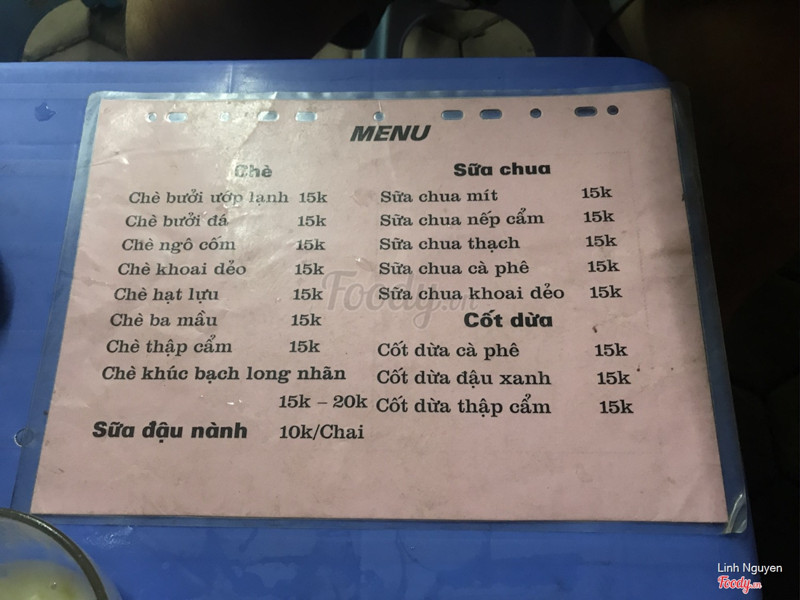 MENU
Chè
Chè bưởi ướp lạnh 15k
Chè bưởi đá 15k
Chè ngô cốm 15k
Chè khoai dẻo 15k
Chè hạt lựu 15k
Chè ba mầu 15k
Chè thập cẩm 15k
Chè khúc bạch long nhãn
15k – 20k
Sữa đậu nành 10k/Chai
Sữa chua
Sữa chua mít 15k
Sữa chua nếp cẩm 15k
Sữa chua thạch 15k
Sữa chua cà phê 15k
Sữa chua khoai dẻo 15k
Cốt dừa
Cốt dừa cà phê 15k
Cốt dừa đậu xanh 15k
Cốt dừa thập cẩm 15k
Foody.vn
Linh Nguyen
Foody.vn